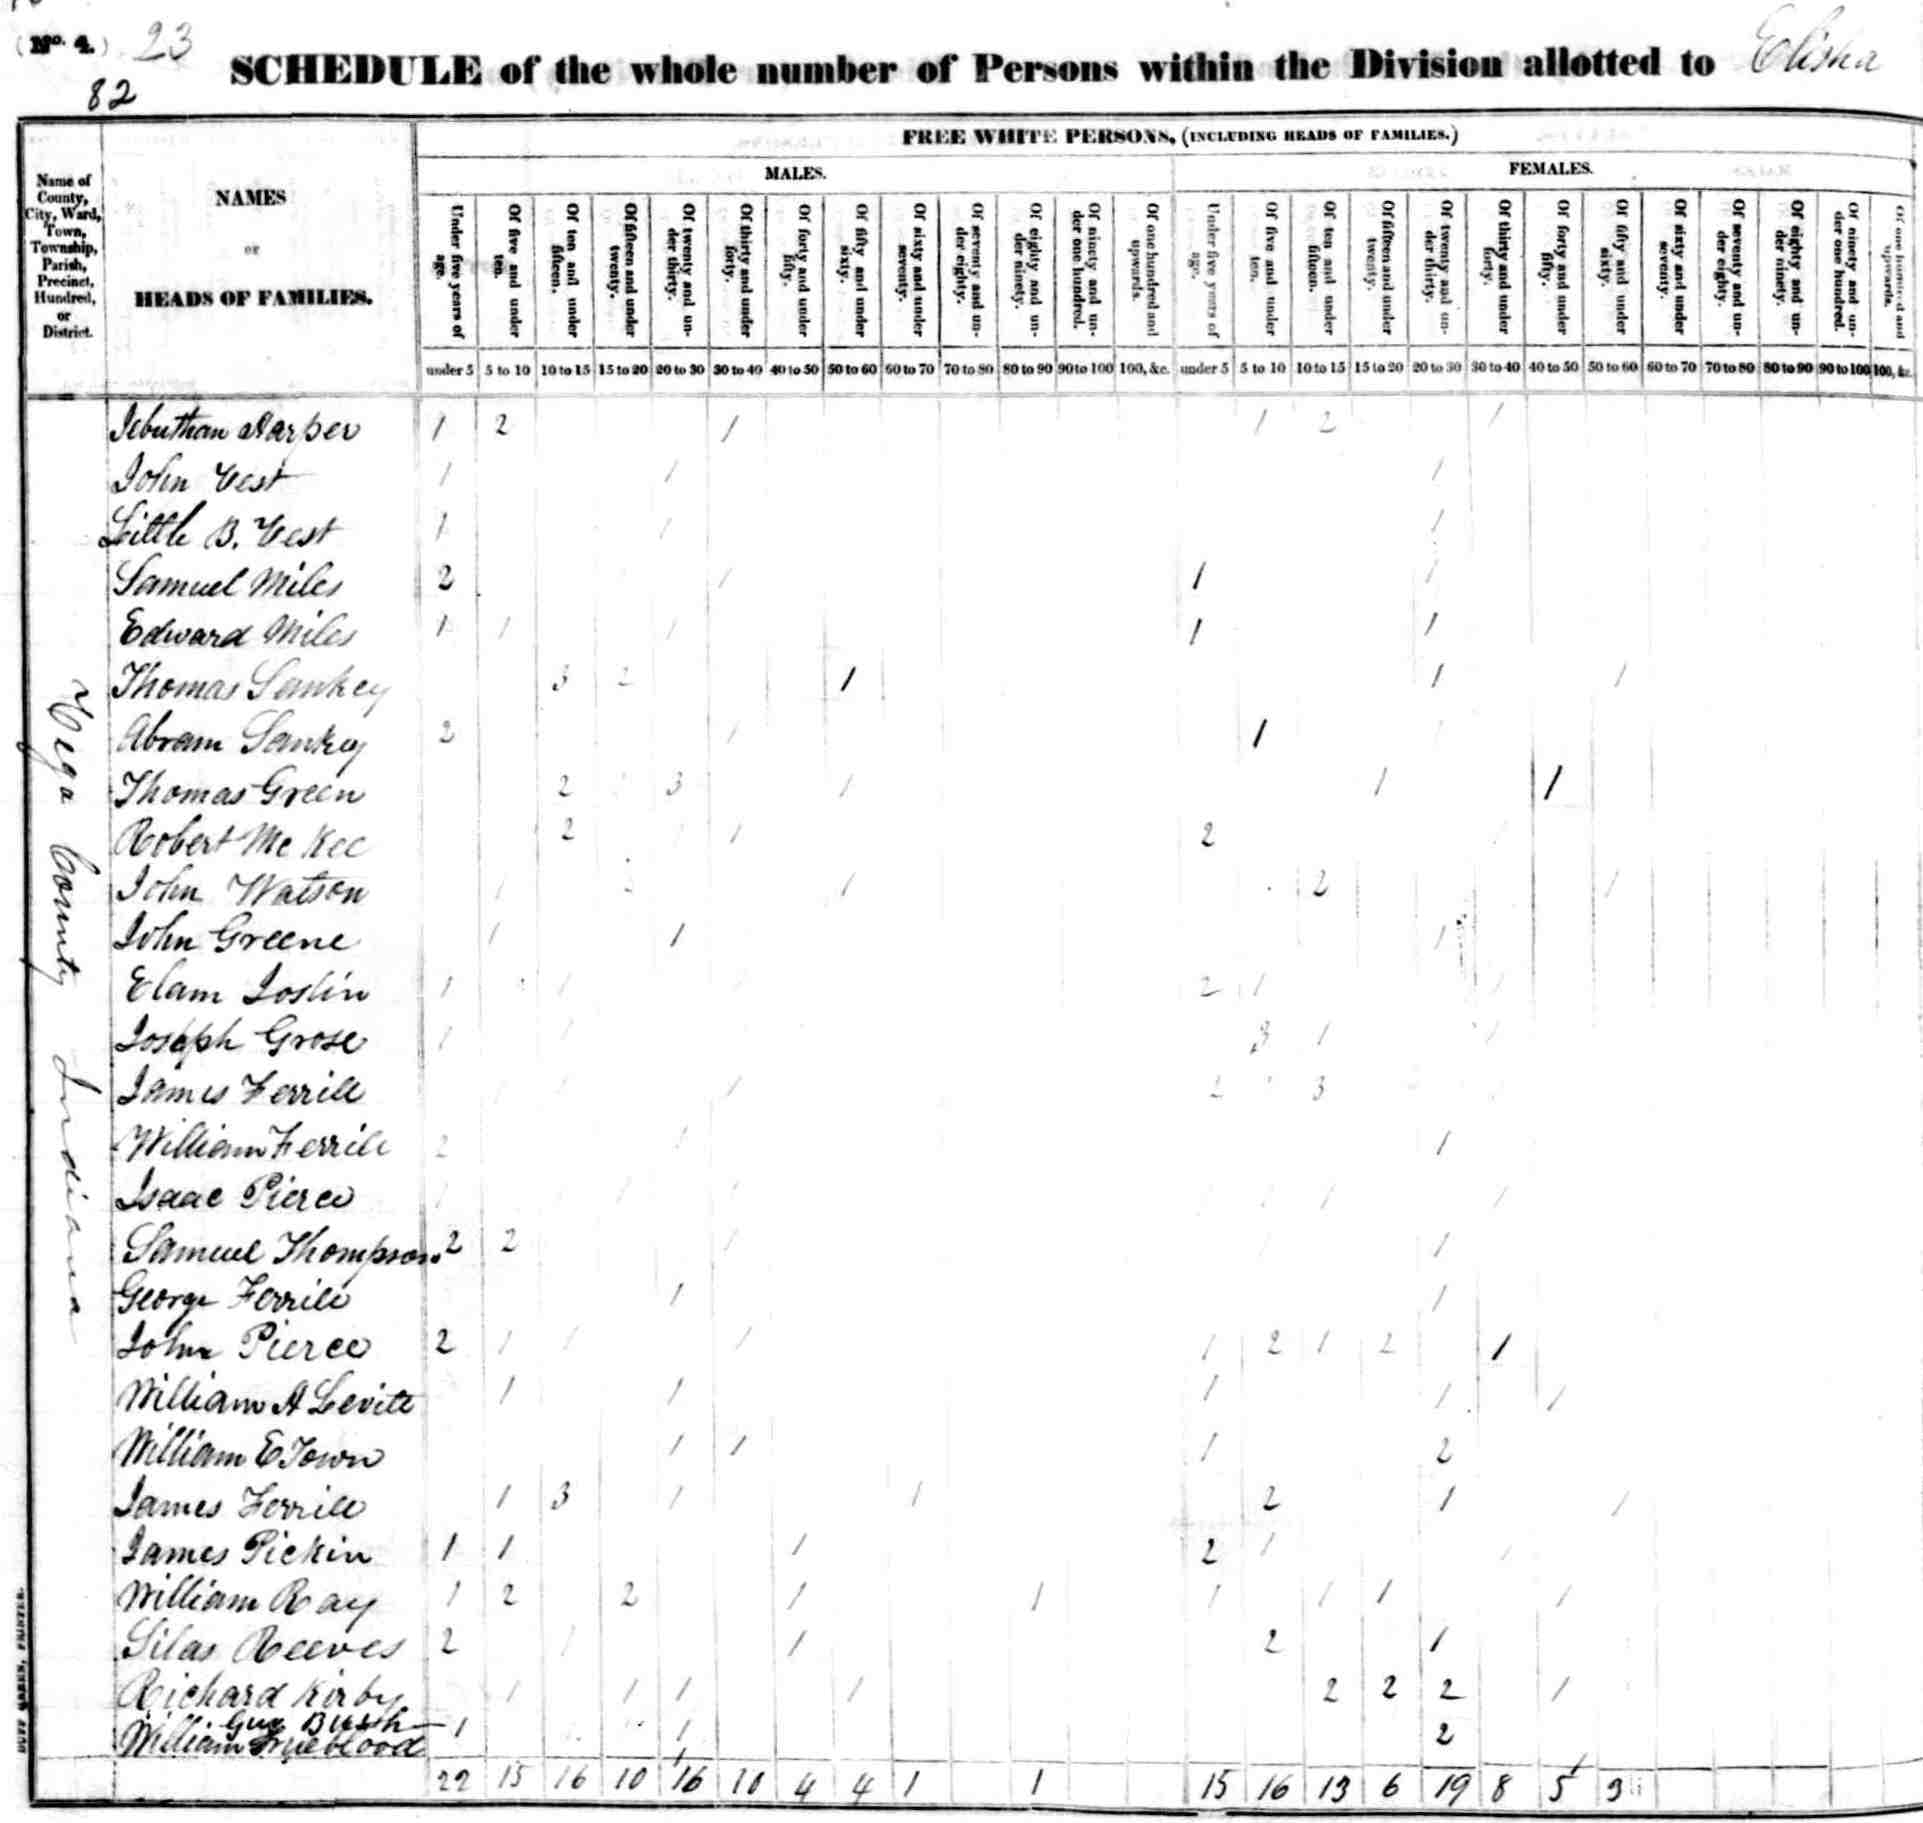 (No. 4.) 23
82
SCHEDULE of the whole number of Persons within the Division allotted to Elisha
FREE WHITE PERSONS, (INCLUDING HEADS OF FAMILIES.)
MALES. FEMALES.
Name of County, City, Ward, Town, Township, Parish, Precinct, Hundred, or District.
NAMES
OF
HEADS OF FAMILIES.
Under five years of age.
Of five and under ten.
Of ten and under fifteen.
Of fifteen and under twenty.
Of twenty and under thirty.
Of thirty and under forty.
Of forty and under fifty.
Of fifty and under sixty.
Of sixty and under seventy.
Of seventy and under eighty.
Of eighty and under ninety.
Of ninety and under one hundred.
Of one hundred and upwards.
Under five years of age.
Of five and under ten.
Of ten and under fifteen.
Of fifteen and under twenty.
Of twenty and under thirty.
Of thirty and under forty.
Of forty and under fifty.
Of fifty and under sixty.
Of sixty and under seventy.
Of seventy and under eighty.
Of eighty and under ninety.
Of ninety and under one hundred.
Of one hundred and upwards.
under 5 5 to 10 10 to 15 15 to 20 20 to 30 30 to 40 40 to 50 50 to 60 60 to 70 70 to 80 80 to 90 90 to 100 100, &c. under 5 5 to 10 10 to 15 15 to 20 20 to 30 30 to 40 40 to 50 50 to 60 60 to 70 70 to 80 80 to 90 90 to 100 100, &c.
Vego County Indiana
Jebuthan Harper 1 2 1 1 2 1
John Vest 1 1 1
Little B. Vest 1 1 1
Samuel Miles 2 1 1 1
Edward Miles 1 1 1 1 1
Thomas Sankey 3 2 1 1 1
Abram Sankey 2 1 1 1
Thomas Green 2 3 1 1 1
Robert McKee 2 1 1 2 1
John Watson 1 2 1 2 1
John Greene 1 1 1
Elam Joslin 1 1 2 1 1
Joseph Grose 1 1 3 1 1
James Ferrill 1 1 1 2 1 3 1
William Ferrill 2 1 1
Isaac Pierce 1 1 1 1 1 1 1
Samuel Thompson 2 2 1 1 1
George Ferrill 1 1
John Pierce 2 1 1 1 1 2 1 2 1
William A Levitt 1 1 1 1 1
William E Town 1 1 1 2
James Ferrill 1 3 1 1 2 1 1
James Pickin 1 1 1 2 1 1
William Ray 1 2 2 1 1 1 1 1 1
Silas Reeves 2 1 1 2 1
Richard Kirby 1 1 1 1 2 2 2 1
Guy Bush
William Trueblood 1 1 2
22 15 16 10 16 10 4 4 1 1 15 16 13 6 19 8 5 3
DUFF GREEN, PRINTER.